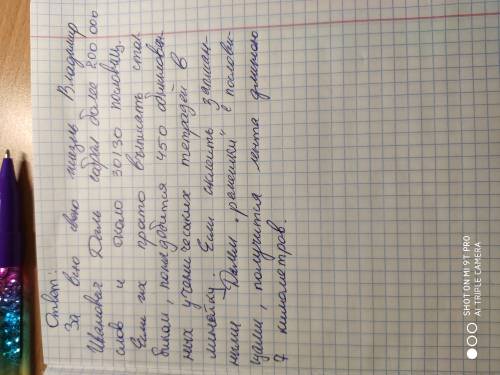 Ответ:
За всю свою жизнь Владимир
Иванович Даль собрал более 200 000
слов и около 30130 пословиц.
Если их просто выписать стол
биком, понадобится 450 одинаков
ных ученических тетрадей в
линейку. Если склеить записан-
ными Далем „ремешки" с послови-
цами, получится лента длиною
7 километров.
SHOT ON MI 9T PRO
AI TRIPLE CAMERA